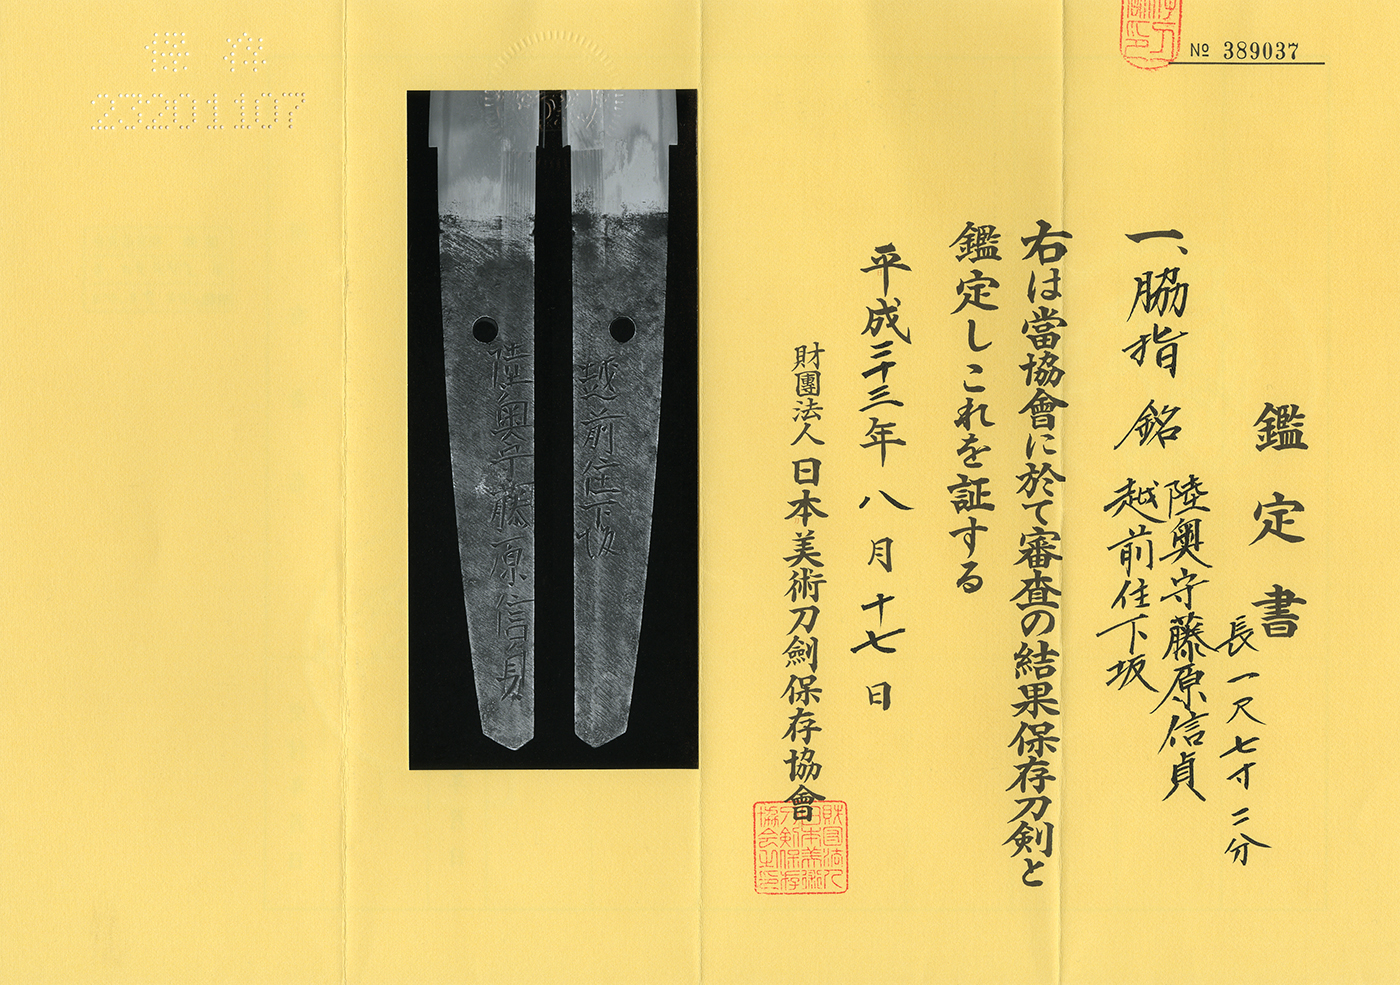 No 389037
鑑定書
長一尺七寸二分
一、脇指 銘 陸奥守藤原信貞
越前住下坂
右は當協會に於て審査の結果保存刀剣と
鑑定しこれを証する
平成二十三年八月十七日
財團法人日本美術刀劍保存協會
財団法人
日本美術
刀剣保存
協会之印
越前住下坂
陸奥守藤原信貞
保存
23201107